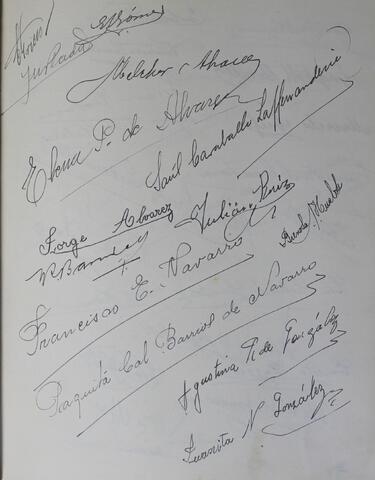 Gómez
Hurtado
Melchor Alvarez
Elena P. de Alvarez
Saúl Caraballo Laffernanderie
Jorge Alvarez
Julián Ruiz
Francisco E. Navarro
Paquita Cal Barrios de Navarro
Agustina P. de González
Juanita N. González